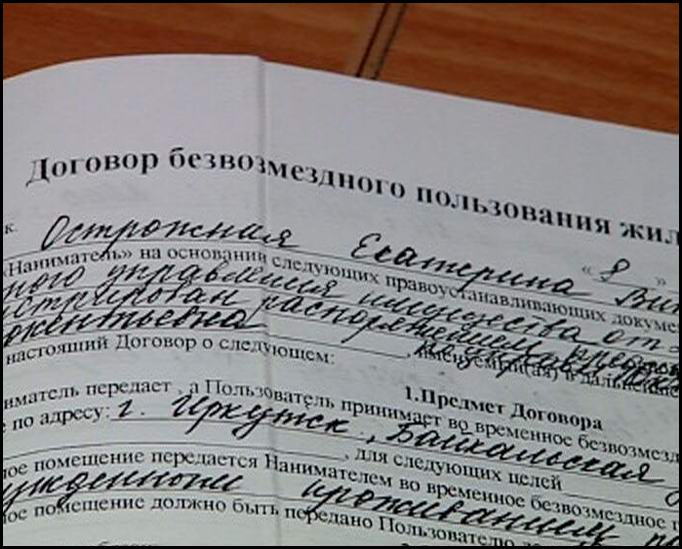 Договор безвозмездного пользования жил
к. Острожная Екатерина Вик
« 8 »
«Наниматель» на основании следующих правоустанавливающих докуме
ного управления имущества от
распоряжением
настоящий Договор о следующем: , именуемый(ая) в дальнейшем
1.Предмет Договора
иматель передает , а Пользователь принимает во временное безвозмезд
е по адресу: г. Иркутск, Байкальская
, для следующих целей
ое помещение передается Нанимателем во временное безвозмездное п
проживанием
ое помещение должно быть передано Пользователю